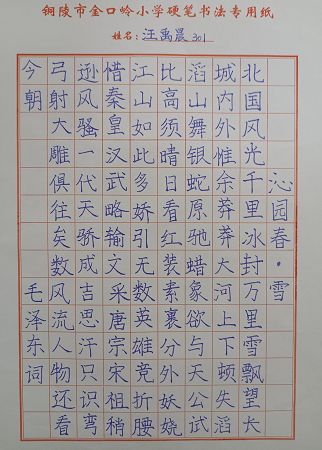 铜陵市金口岭小学硬笔书法专用纸
姓名：汪禹晨 301
沁园春·雪
北国风光千里冰封万里雪飘望长
城内外惟余莽莽大河上下顿失滔
滔山舞银蛇原驰蜡象欲与天公试
比高须晴日看红装素裹分外妖娆
江山如此多娇引无数英雄竞折腰
惜秦皇汉武略输文采唐宗宋祖稍
逊风骚一代天骄成吉思汗只识弯
弓射大雕俱往矣数风流人物还看
今朝 毛泽东词